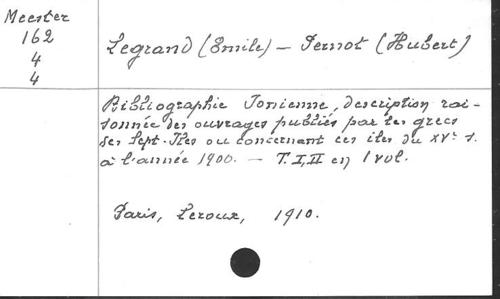 Meester
162
4
4
Legrand (Emile) – Pernot (Hubert)
Bibliographie Ionienne, description rai-
sonnée des ouvrages publiés par les grecs
des Sept-Iles ou concernant ces iles du XVe s.
à l'année 1900. – T. I, II en 1 vol.
Paris, Leroux, 1910.